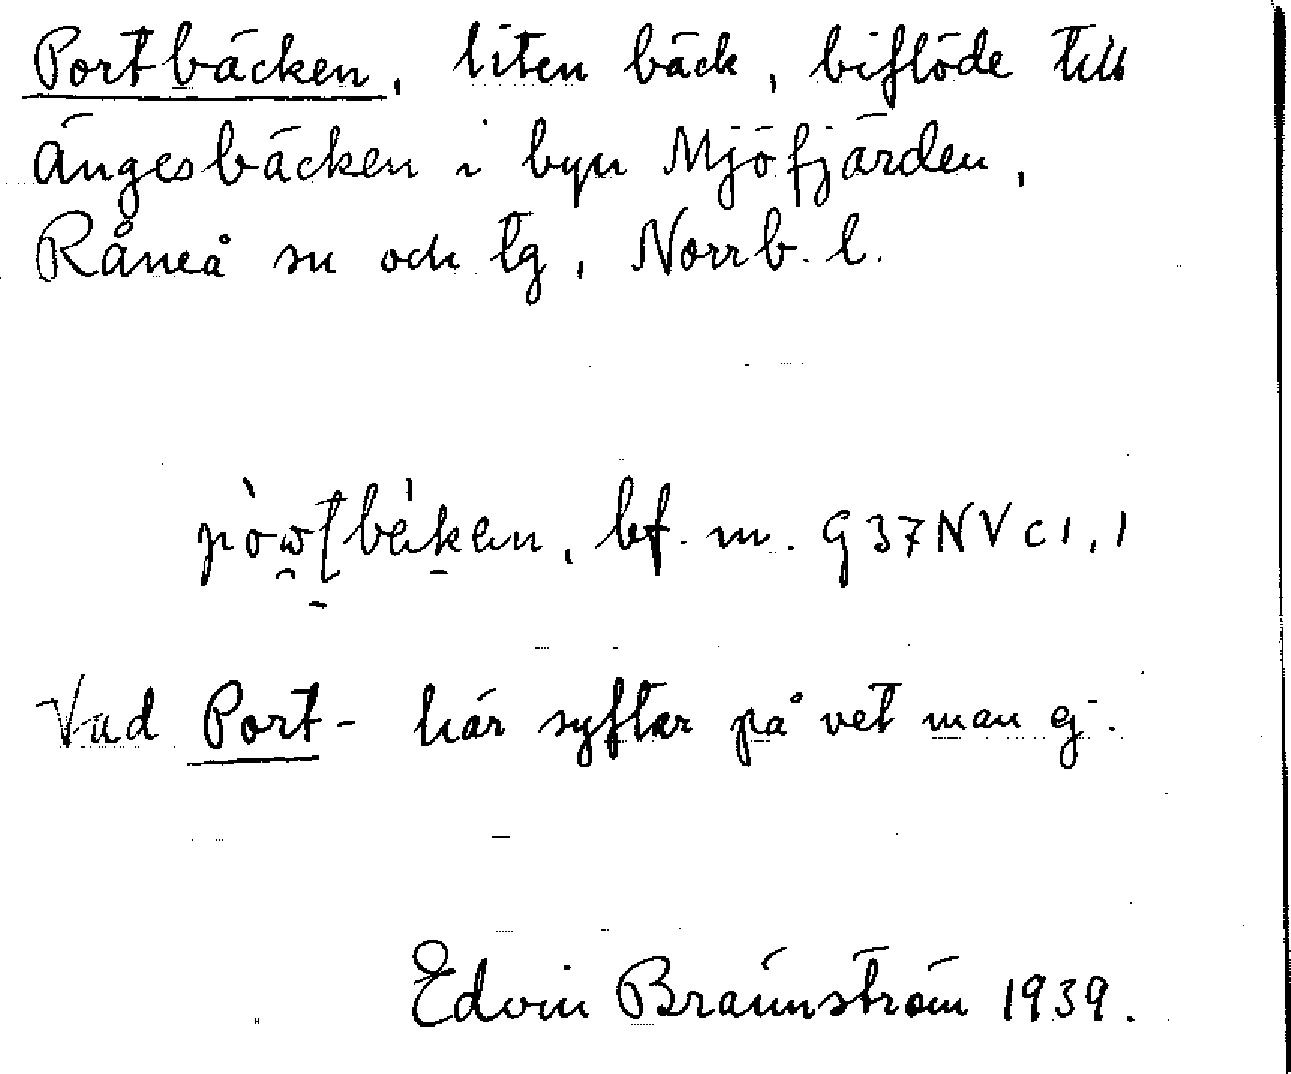 Portbäcken, liten bäck, biflöde till
Ängesbäcken i byn Mjöfjärden,
Råneå sn och tg, Norrb. l.
bf. m. G 37 NV c 1, 1
Vad Port- här syftar på vet man ej.
Edvin Brännström 1939.